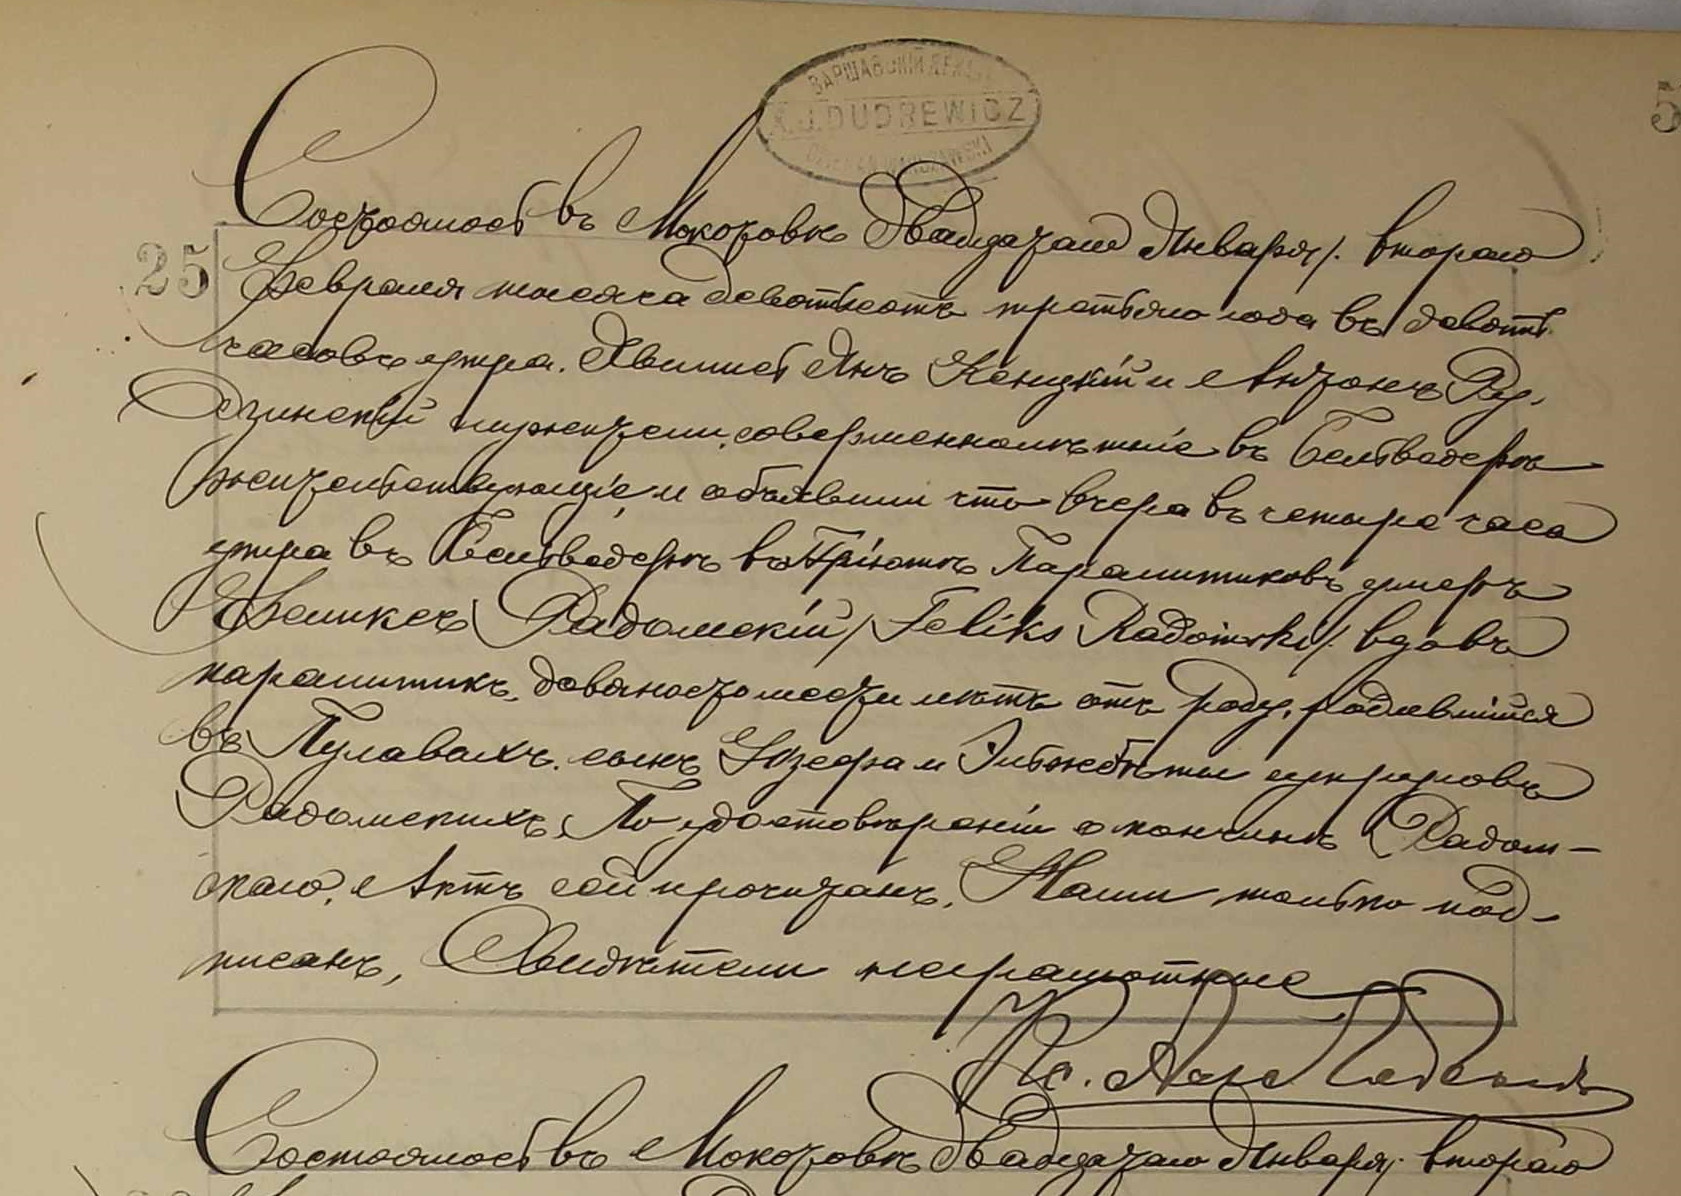 ВАРШАВСКІЙ ДЕКАНЪ
X. J. DUDREWICZ
DZIEKAN WARSZAWSKI
5
Состоялось въ Мокотовѣ двадцатаго Января/. втораго
25
Февраля тысяча девятьсотъ третьяго года въ девять
часовъ утра. Явились Янъ Кеницкій и Антонъ Ру-
дзинскій служители, совершеннолѣтніе въ Бельведерѣ
жительствующіе, и объявили что вчера въ четыре часа
утра въ Бельведерѣ въ Пріютѣ Паралитиковъ умеръ
Феликсъ Радомскій /Feliks Radomski/. вдовъ
паралитикъ, девяносто шести лѣтъ отъ роду, родившійся
въ Пулавахъ. сынъ Юзефа и Эльжбѣты супруговъ
Радомскихъ, По удостовѣреніи о кончинѣ Радом-
скаго, Актъ сей прочитанъ, Нами только под-
писанъ, Свидѣтели неграмотные
Состоялось въ Мокотовѣ двадцатаго Января/. втораго